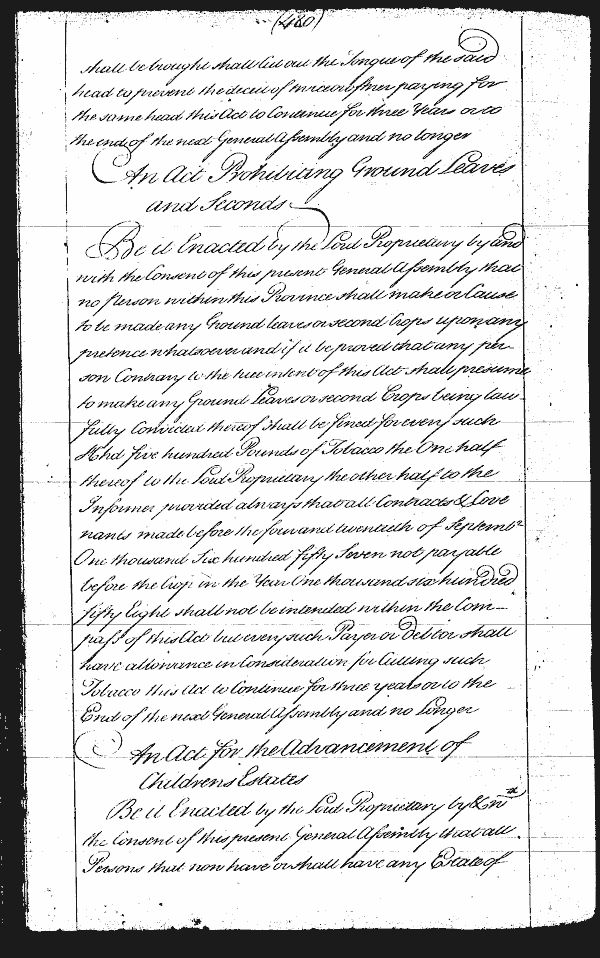 (480)
shall be brought shall Cut out the Tongue of the said
head to prevent the deceit of twice or oftner paying for
the same head this Act to Continue for three Years or to
the end of the next General Assembly and no longer
An Act Prohibiting Ground Leaves
and Seconds
Be it Enacted by the Lord Proprietary by and
with the Consent of this present General Assembly that
no Person within this Province shall make or Cause
to be made any Ground leaves or second Crops upon any
pretence whatsoever and if it be proved that any per-
son Contrary to the true intent of this Act shall presume
to make any Ground Leaves or second Crops being law-
fully Convicted thereof shall be fined for every such
Hhd five hundred Pounds of Tobacco the One half
thereof to the Lord Proprietary the other half to the
Informer provided always that all Contracts & Cove
nants made before the four and twentieth of Septembr
One thousand Six hundred fifty Seven not payable
before the Crop in the Year One thousand six hundred
fifty Eight shall not be intended within the Com-
pass of this Act but every such Payer or Debtor shall
have allowance in Consideration for Cutting such
Tobacco this Act to Continue for three years or to the
End of the next General Assembly and no Longer
An Act for the Advancement of
Childrens Estates
Be it Enacted by the Lord Proprietary by & wth
the Consent of this present General Assembly that all
Persons that now have or shall have any Estate of